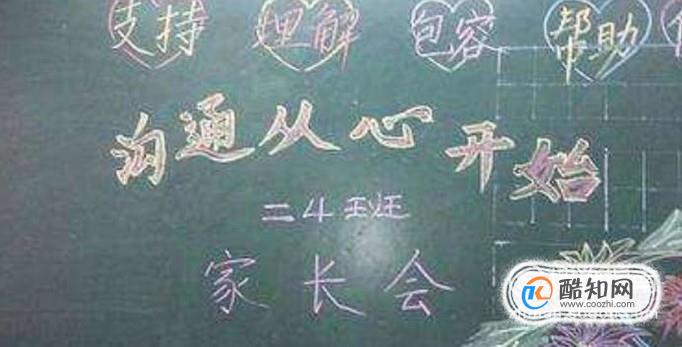 支持 理解 包容 帮助
沟通从心开始
二4班
家长会
酷知网
www.coozhi.com